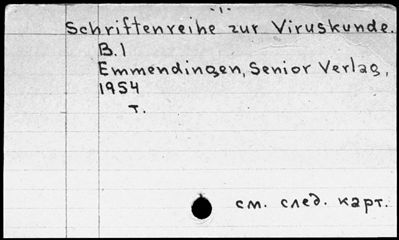 -1-
Schriftenreihe zur Viruskunde.
B.1
Emmendingen, Senior Verlag,
1954
т.
см. след. карт.